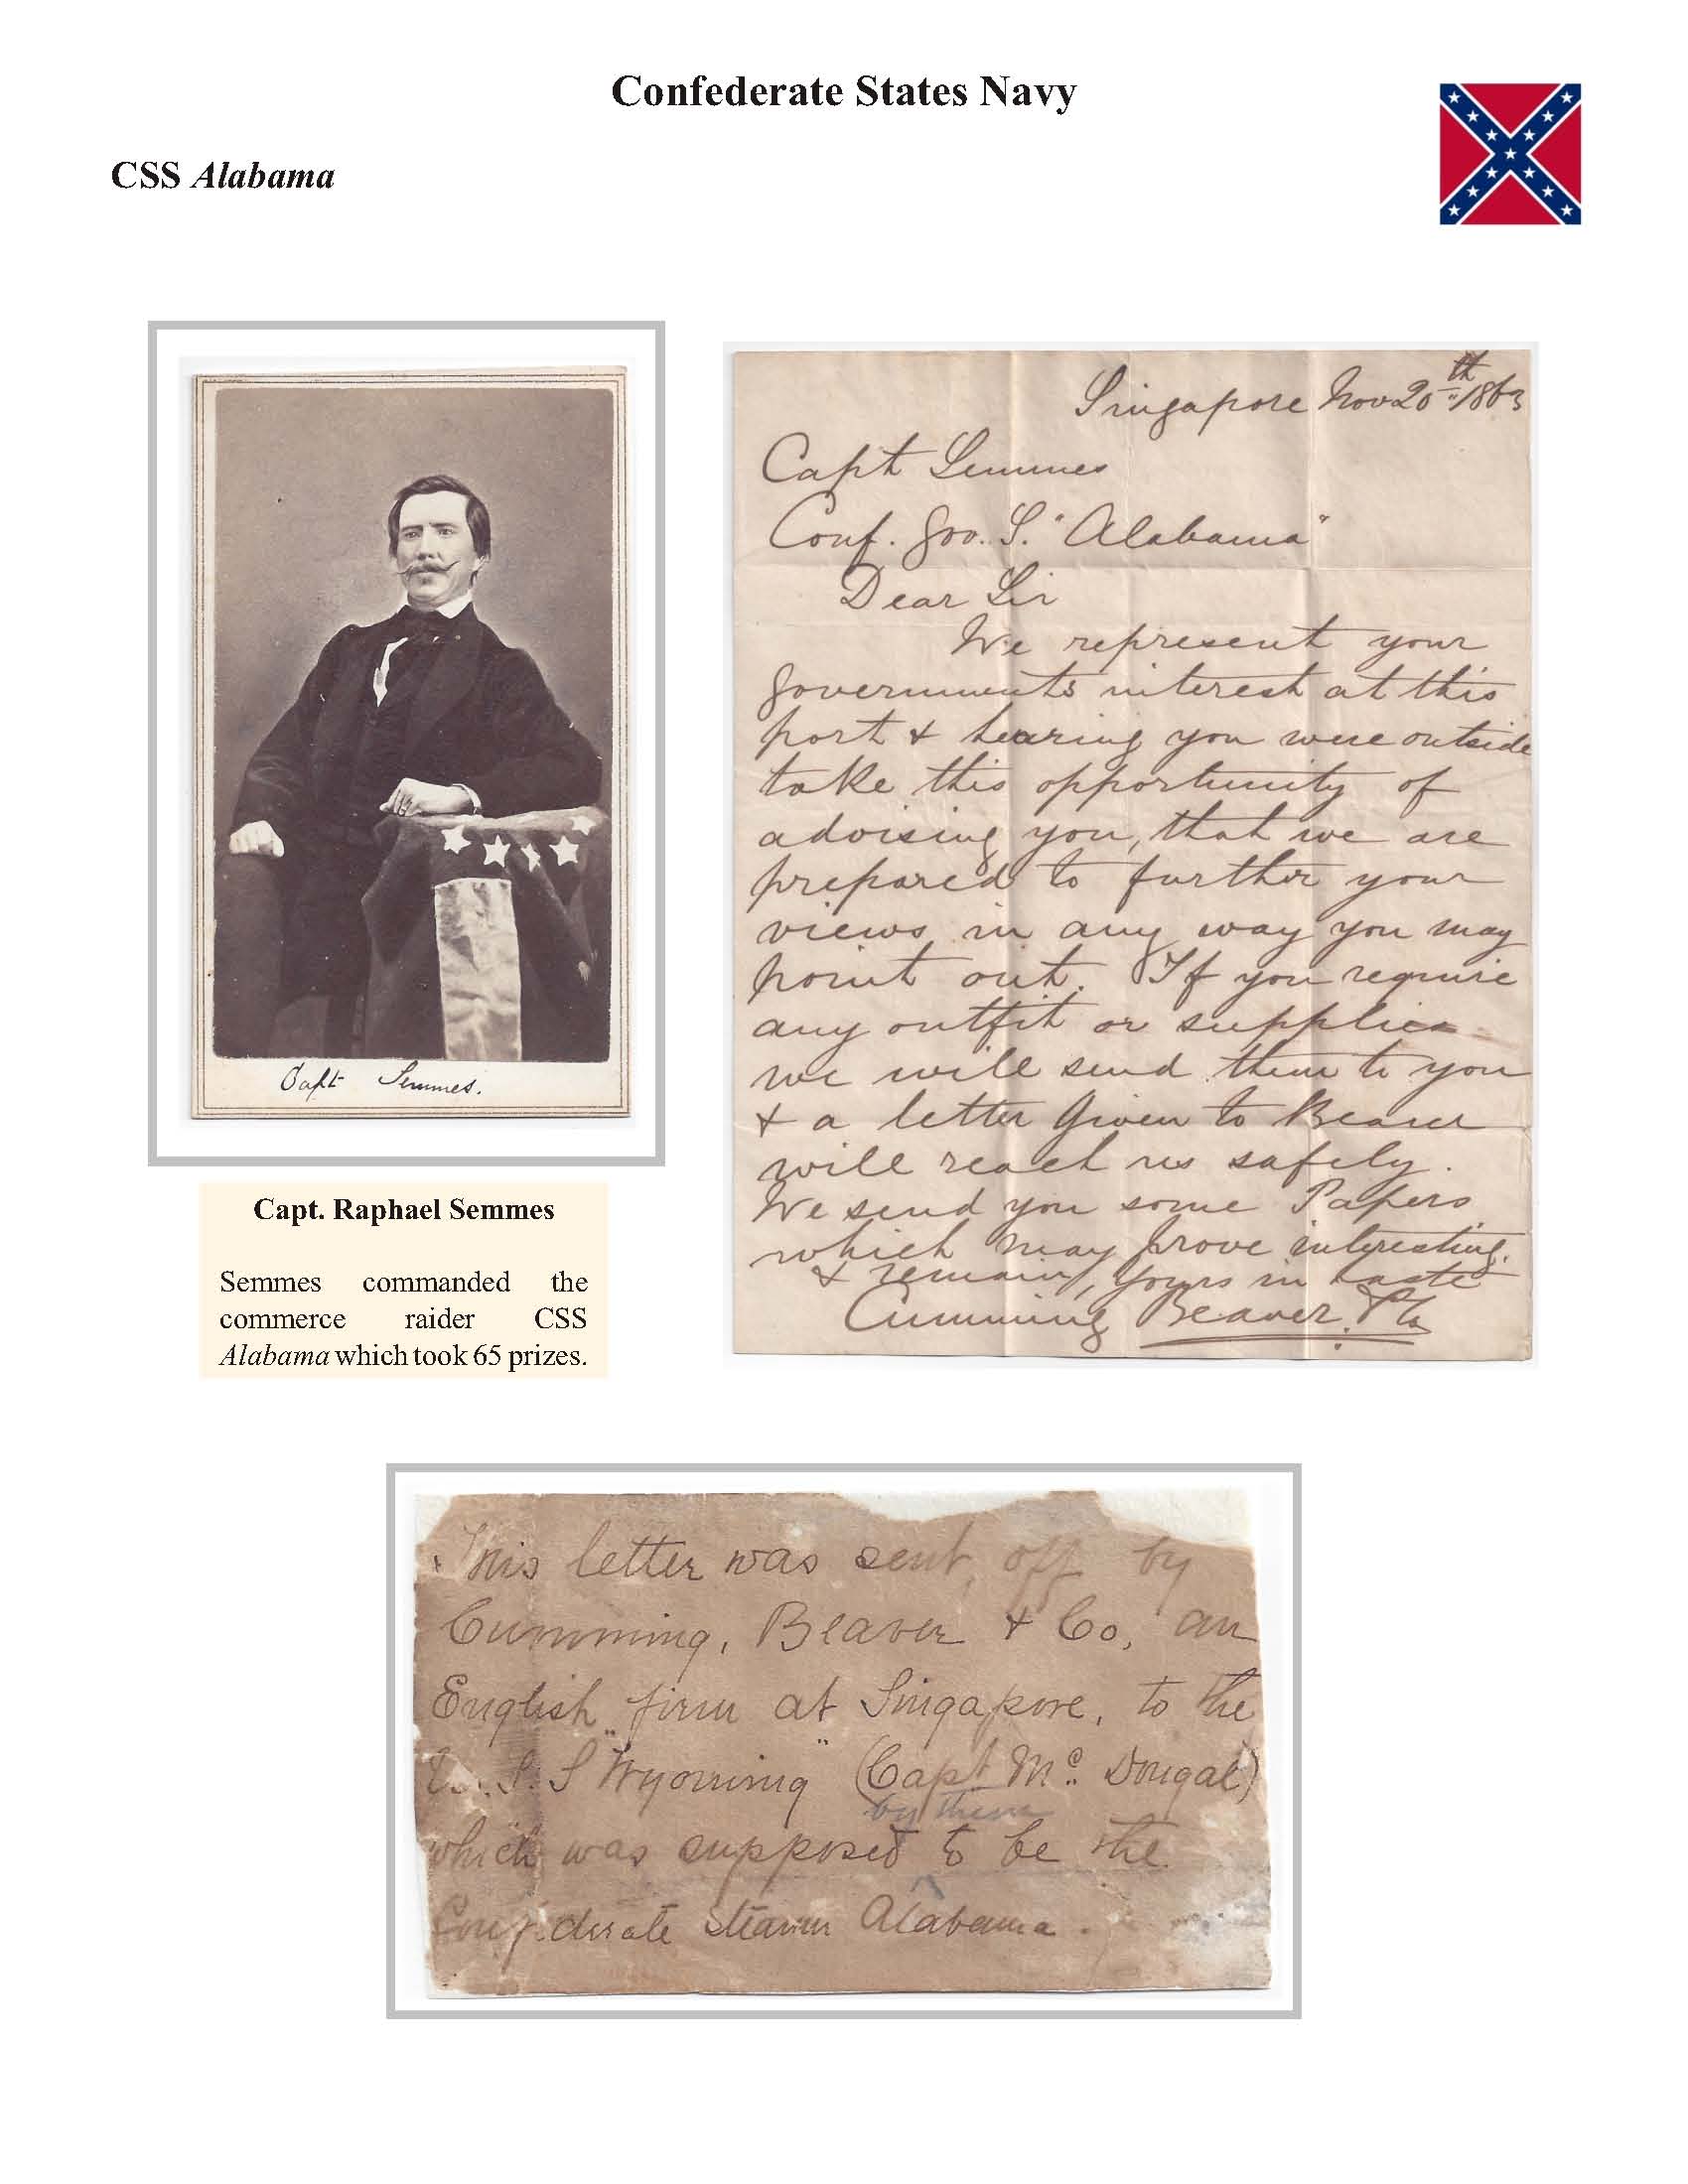 Confederate States Navy
CSS Alabama
Capt Semmes.
Capt. Raphael Semmes
Semmes commanded the
commerce raider CSS
Alabama which took 65 prizes.
Singapore Nov 20th 1863
Capt Semmes
Conf. Gov. S. "Alabama"
Dear Sir
We represent your
Governments interest at this
port & hearing you were outside
take this opportunity of
advising you, that we are
prepared to further your
views in any way you may
point out. If you require
any outfit or supplies
we will send them to you
& a letter given to Bearer
will reach us safely.
We send you some Papers
which may prove interesting.
& remain, yours in haste
Cumming Beaver & Co
This letter was sent off by
Cumming, Beaver & Co, an
English firm at Singapore, to the
U. S. S "Wyoming" (Capt Mc. Dougal)
by them
which was supposed to be the
Confederate steamer Alabama.